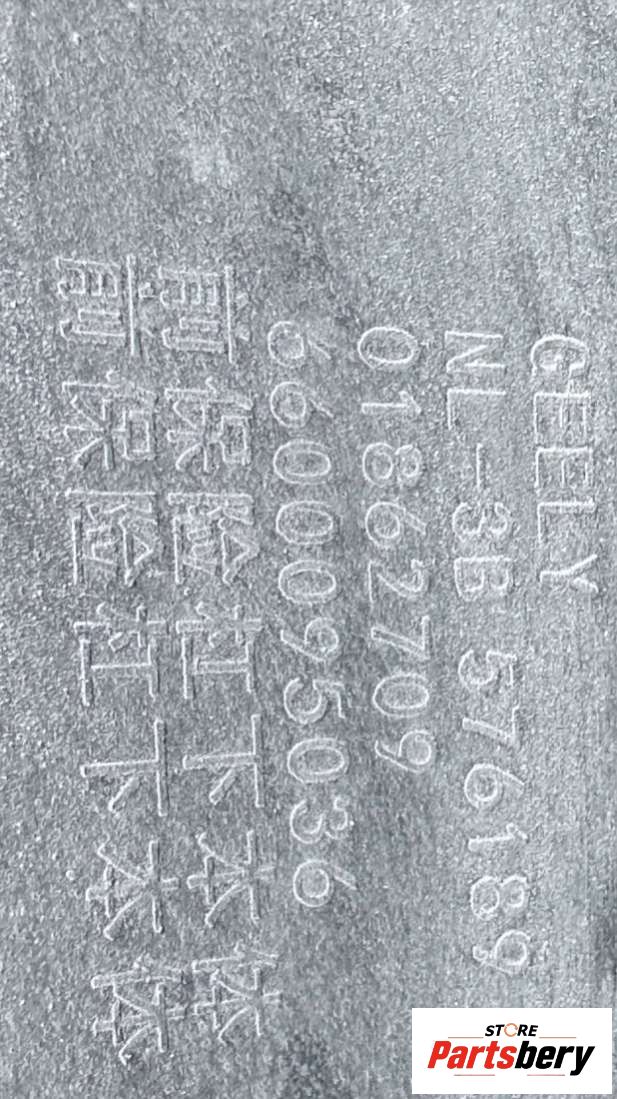 GEELY
NL-3B 576189
01862709
6600095036
前保险杠下本体
前保险杠下本体
STORE
Partsbery